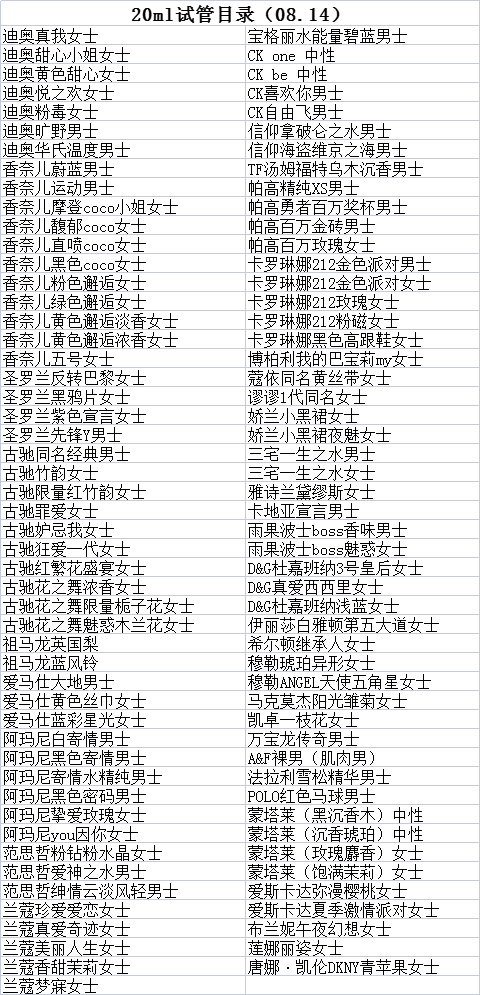 20ml试管目录（08.14）
迪奥真我女士
迪奥甜心小姐女士
迪奥黄色甜心女士
迪奥悦之欢女士
迪奥粉毒女士
迪奥旷野男士
迪奥华氏温度男士
香奈儿蔚蓝男士
香奈儿运动男士
香奈儿摩登coco小姐女士
香奈儿馥郁coco女士
香奈儿直喷coco女士
香奈儿黑色coco女士
香奈儿粉色邂逅女士
香奈儿绿色邂逅女士
香奈儿黄色邂逅淡香女士
香奈儿黄色邂逅浓香女士
香奈儿五号女士
圣罗兰反转巴黎女士
圣罗兰黑鸦片女士
圣罗兰紫色宣言女士
圣罗兰先锋Y男士
古驰同名经典男士
古驰竹韵女士
古驰限量红竹韵女士
古驰罪爱女士
古驰妒忌我女士
古驰狂爱一代女士
古驰红繁花盛宴女士
古驰花之舞浓香女士
古驰花之舞限量栀子花女士
古驰花之舞魅惑木兰花女士
祖马龙英国梨
祖马龙蓝风铃
爱马仕大地男士
爱马仕黄色丝巾女士
爱马仕蓝彩星光女士
阿玛尼白寄情男士
阿玛尼黑色寄情男士
阿玛尼寄情水精纯男士
阿玛尼黑色密码男士
阿玛尼挚爱玫瑰女士
阿玛尼you因你女士
范思哲粉钻粉水晶女士
范思哲爱神之水男士
范思哲绅情云淡风轻男士
兰蔻珍爱爱恋女士
兰蔻真爱奇迹女士
兰蔻美丽人生女士
兰蔻香甜茉莉女士
兰蔻梦寐女士
宝格丽水能量碧蓝男士
CK one 中性
CK be 中性
CK喜欢你男士
CK自由飞男士
信仰拿破仑之水男士
信仰海盗维京之海男士
TF汤姆福特乌木沉香男士
帕高精纯XS男士
帕高勇者百万奖杯男士
帕高百万金砖男士
帕高百万玫瑰女士
卡罗琳娜212金色派对男士
卡罗琳娜212金色派对女士
卡罗琳娜212玫瑰女士
卡罗琳娜212粉磁女士
卡罗琳娜黑色高跟鞋女士
博柏利我的巴宝莉my女士
蔻依同名黄丝带女士
谬谬1代同名女士
娇兰小黑裙女士
娇兰小黑裙夜魅女士
三宅一生之水男士
三宅一生之水女士
雅诗兰黛缪斯女士
卡地亚宣言男士
雨果波士boss香味男士
雨果波士boss魅惑女士
D&G杜嘉班纳3号皇后女士
D&G真爱西西里女士
D&G杜嘉班纳浅蓝女士
伊丽莎白雅顿第五大道女士
希尔顿继承人女士
穆勒琥珀异形女士
穆勒ANGEL天使五角星女士
马克莫杰阳光雏菊女士
凯卓一枝花女士
万宝龙传奇男士
A&F裸男（肌肉男）
法拉利雪松精华男士
POLO红色马球男士
蒙塔莱（黑沉香木）中性
蒙塔莱（沉香琥珀）中性
蒙塔莱（玫瑰麝香）女士
蒙塔莱（饱满茉莉）女士
爱斯卡达弥漫樱桃女士
爱斯卡达夏季激情派对女士
布兰妮午夜幻想女士
莲娜丽姿女士
唐娜·凯伦DKNY青苹果女士